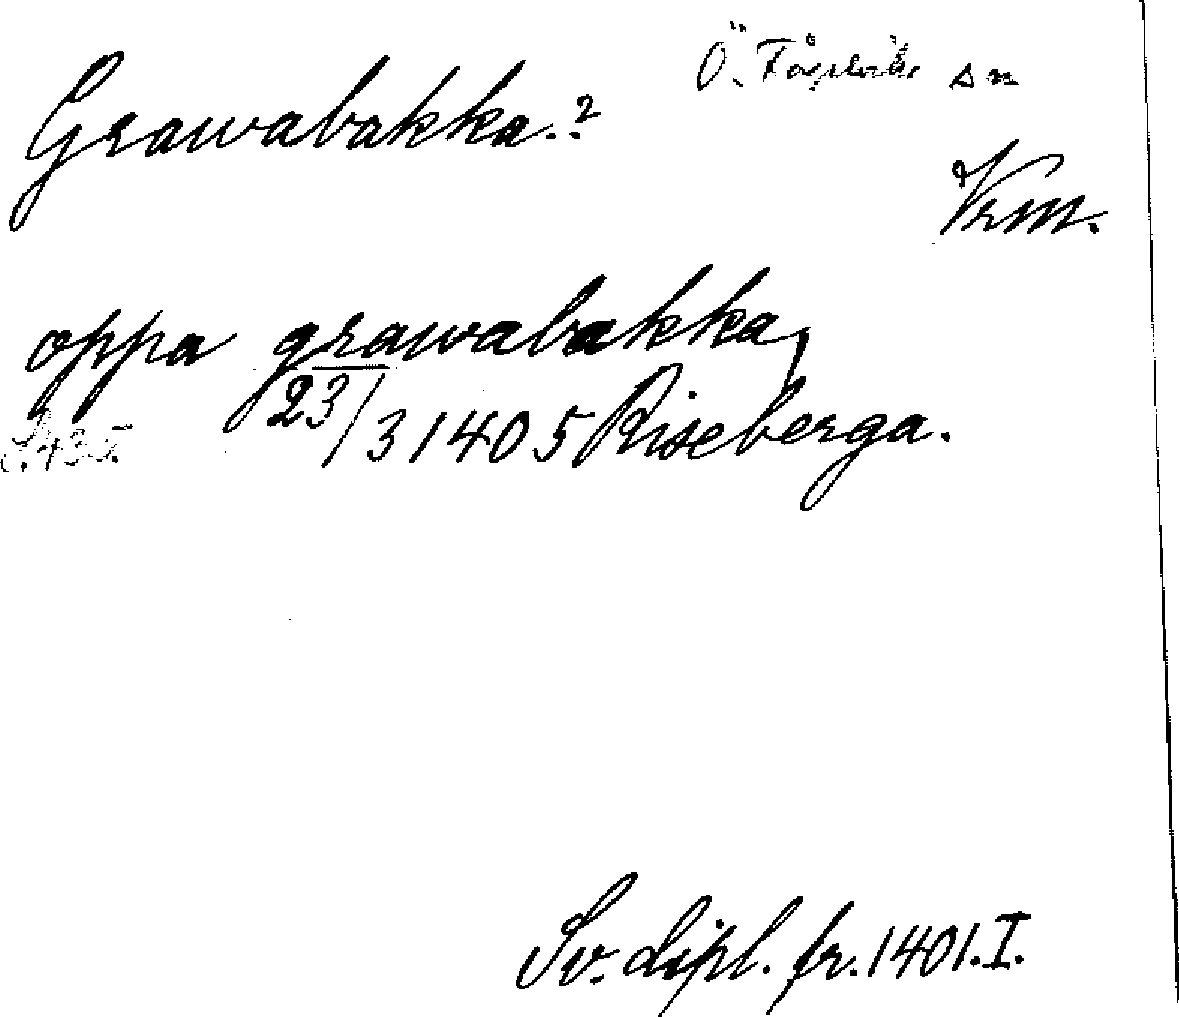 Grawabakka.?
Ö. Fågelvik sn
Vrm.
oppa grawabakka,
S. 435. 23/3 1405 Riseberga.
Sv. dipl. fr. 1401. I.